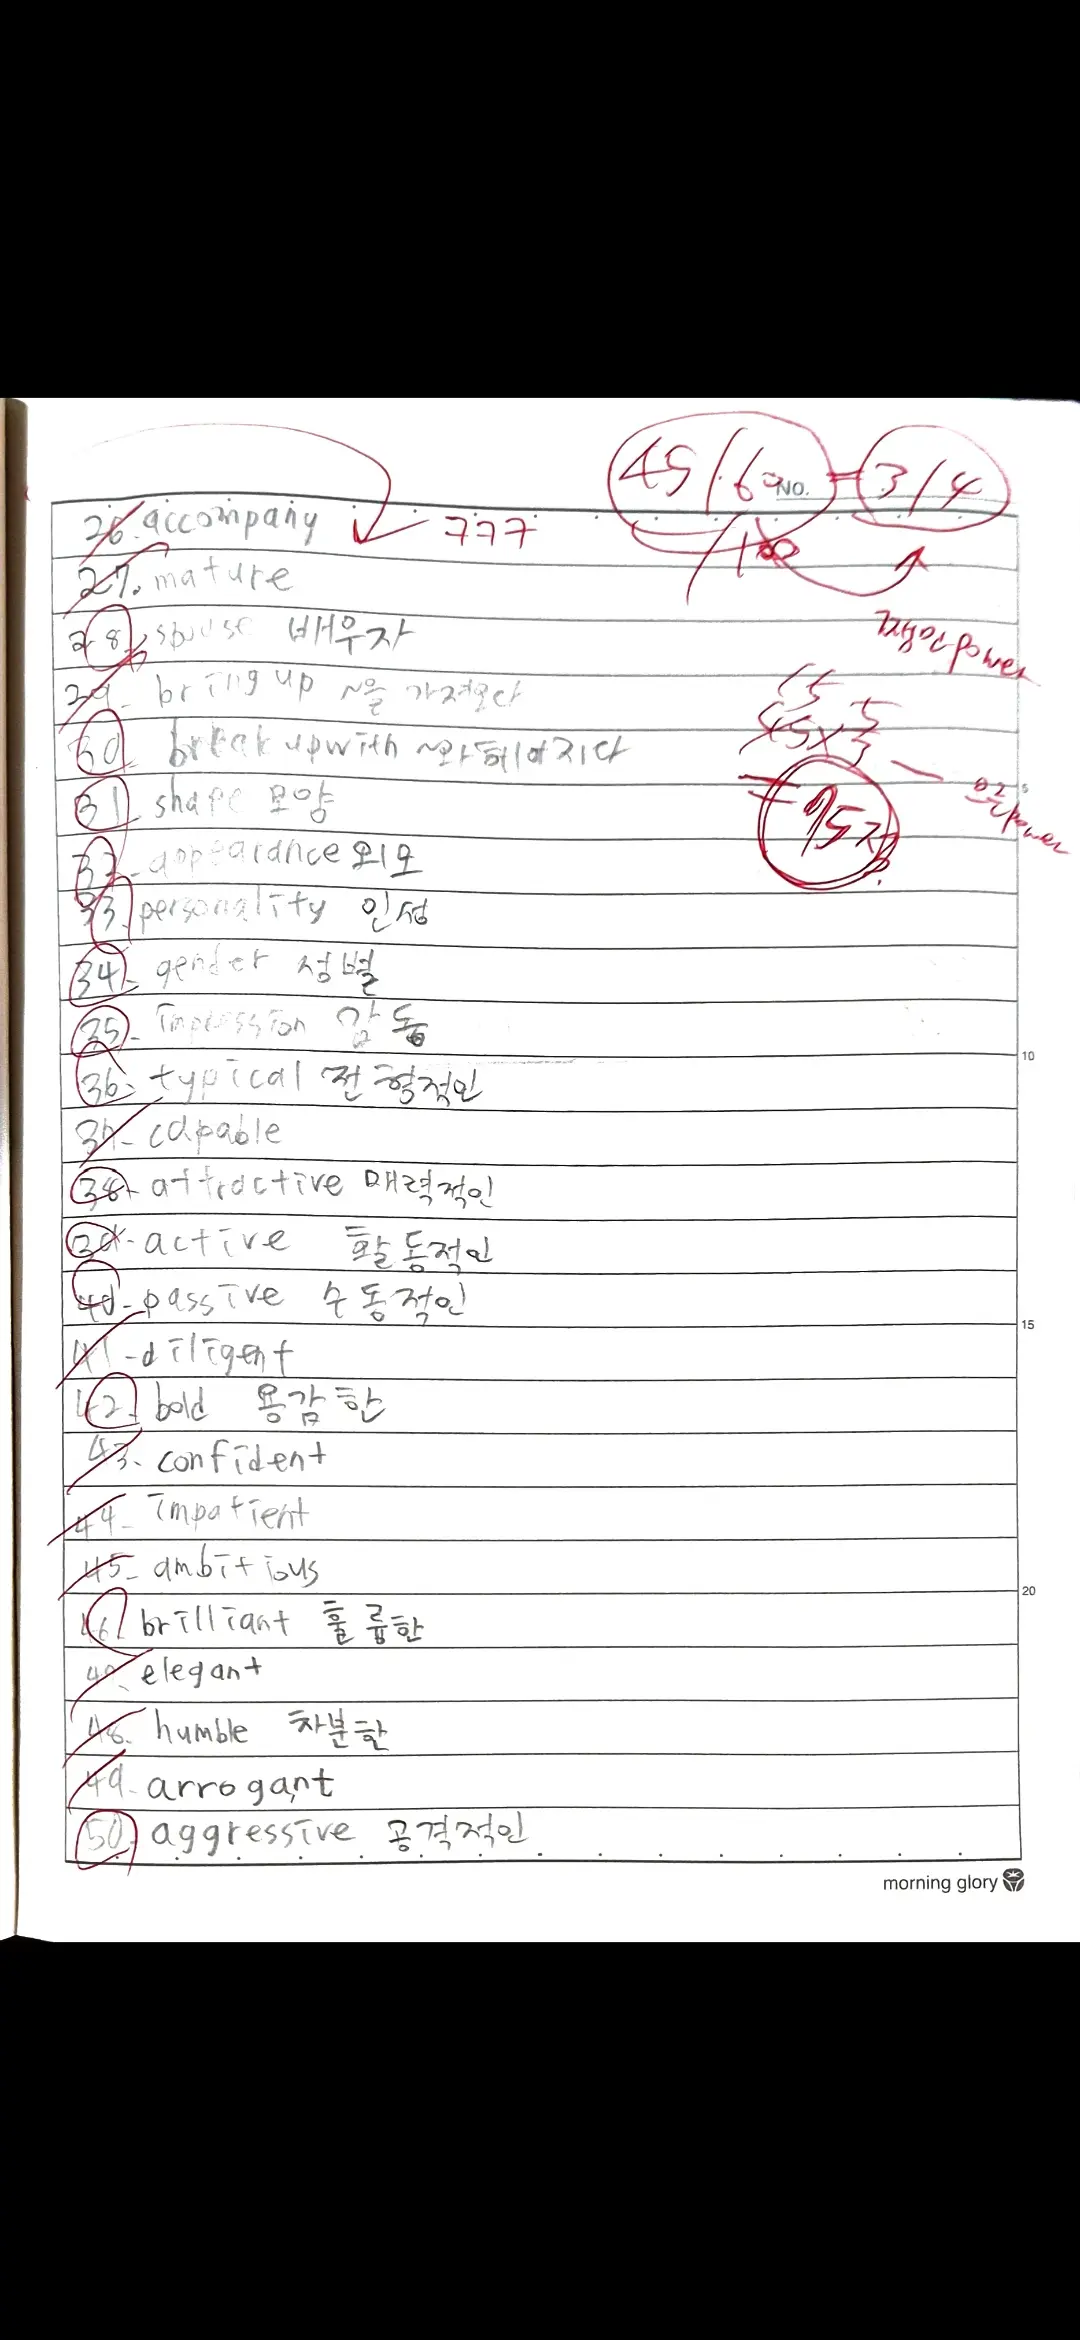 45/60 = 3/4
NO.
26. accompany 777
/100
27. mature
28. spouse 배우자
29. bring up ~을 가져오다
30. break up with ~와 헤어지다
power
15 5
45 x 5/3
31. shape 모양
= 75점
power
5
32. appearance 외모
33. personality 인성
34. gender 성별
35. impression 감동
10
36. typical 전형적인
37. capable
38. attractive 매력적인
39. active 활동적인
40. passive 수동적인
15
41. diligent
42. bold 용감한
43. confident
44. impatient
45. ambitious
20
46. brilliant 훌륭한
elegant
48. humble 차분한
49. arrogant
50. aggressive 공격적인
morning glory